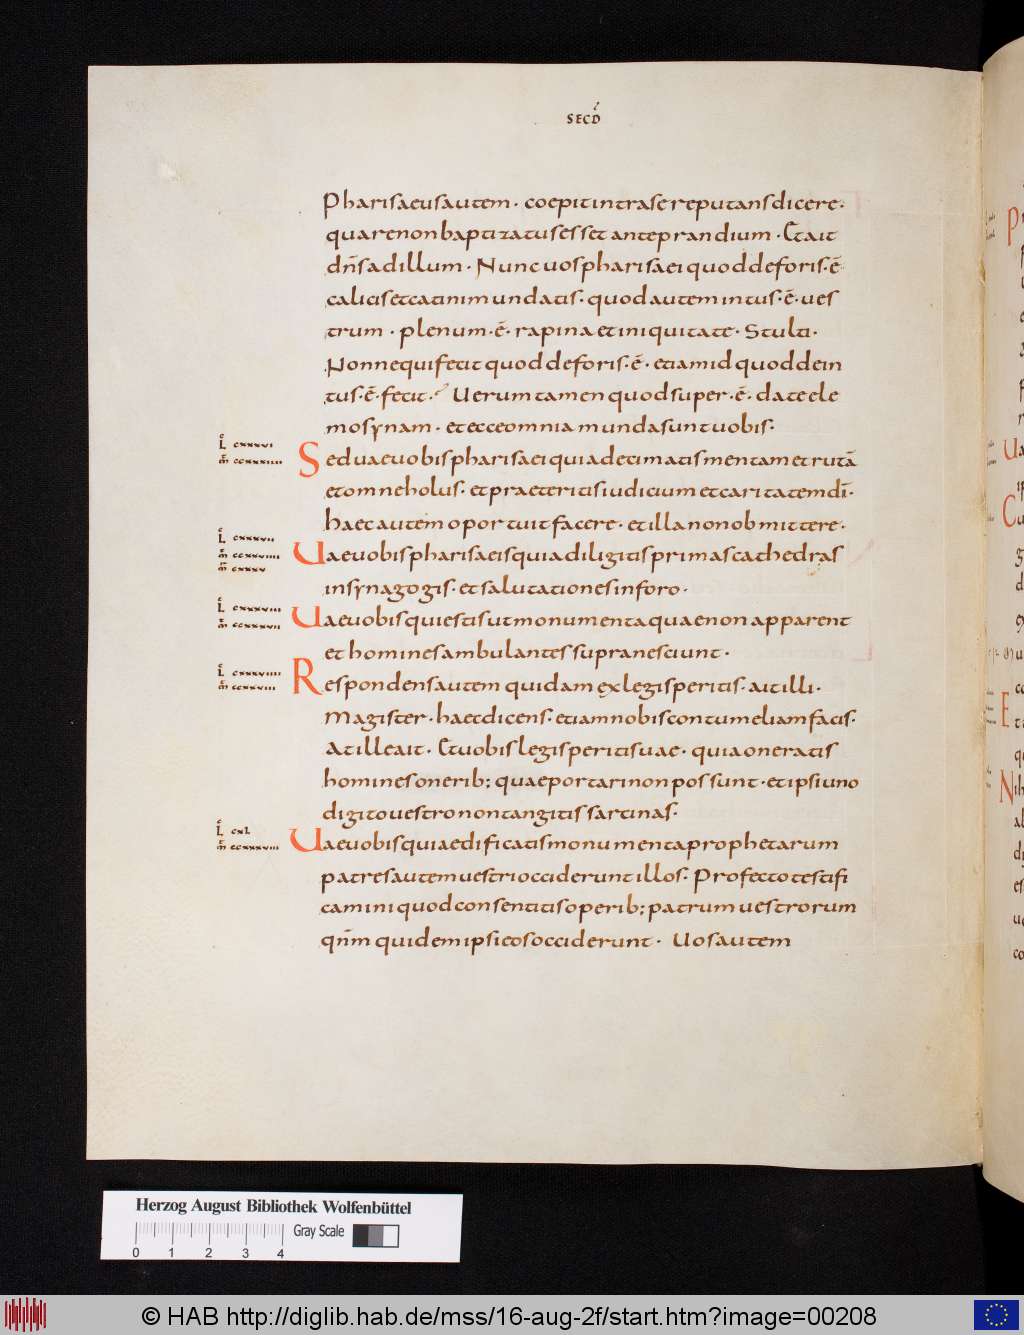 SECD
Pharisaeus autem · coepit intra se reputans dicere ·
quare non baptizatus esset ante prandium · Et ait
dn̄s ad illum · Nunc uos pharisaei quod deforis · ē
calicis et catini mundatis · quod autem intus · ē · ues
trum · plenum · ē · rapina et iniquitate · Stulti ·
Nonne qui fecit quod deforis · ē · etiam id quod dein
tus · ē · fecit · Uerumtamen quod super · ē · date ele
mosynam · et ecce omnia munda sunt uobis ·
L cxxxvi
m̄ ccxxxiiii
Sed uae uobis pharisaei quia decimatis mentam et rutā
et omne holus · et praeteritis iudicium et caritatem dī ·
haec autem oportuit facere · et illa non obmittere ·
L cxxxvii
m̄ cxxxv
Uae uobis pharisaeis quia diligitis primas cathedras
in synagogis · et salutationes in foro ·
L cxxxviii
m̄ ccxxxvii
Uae uobis qui estis ut monumenta quae non apparent
et homines ambulantes supra nesciunt ·
L cxxxviiii
Respondens autem quidam ex legis peritis · ait illi ·
Magister · haec dicens · etiam nobis contumeliam facis ·
At ille ait · Et uobis legis peritis uae · quia oneratis
homines onerib; quae portari non possunt · et ipsi uno
digito uestro non tangitis sarcinas ·
L cxl
m̄ ccxxxviii
Uae uobis qui aedificatis monumenta prophetarum
patres autem uestri occiderunt illos · Profecto testifi
camini quod consentitis operib; patrum uestrorum
qn̄m quidem ipsi eos occiderunt · Uos autem
Herzog August Bibliothek Wolfenbüttel
Gray Scale
0 1 2 3 4
© HAB http://diglib.hab.de/mss/16-aug-2f/start.htm?image=00208